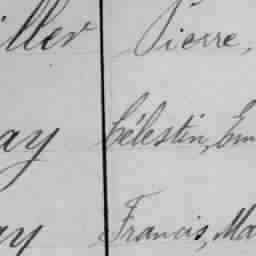 iller Pierre,
ay Célestin, Em
ay Francis, Ma